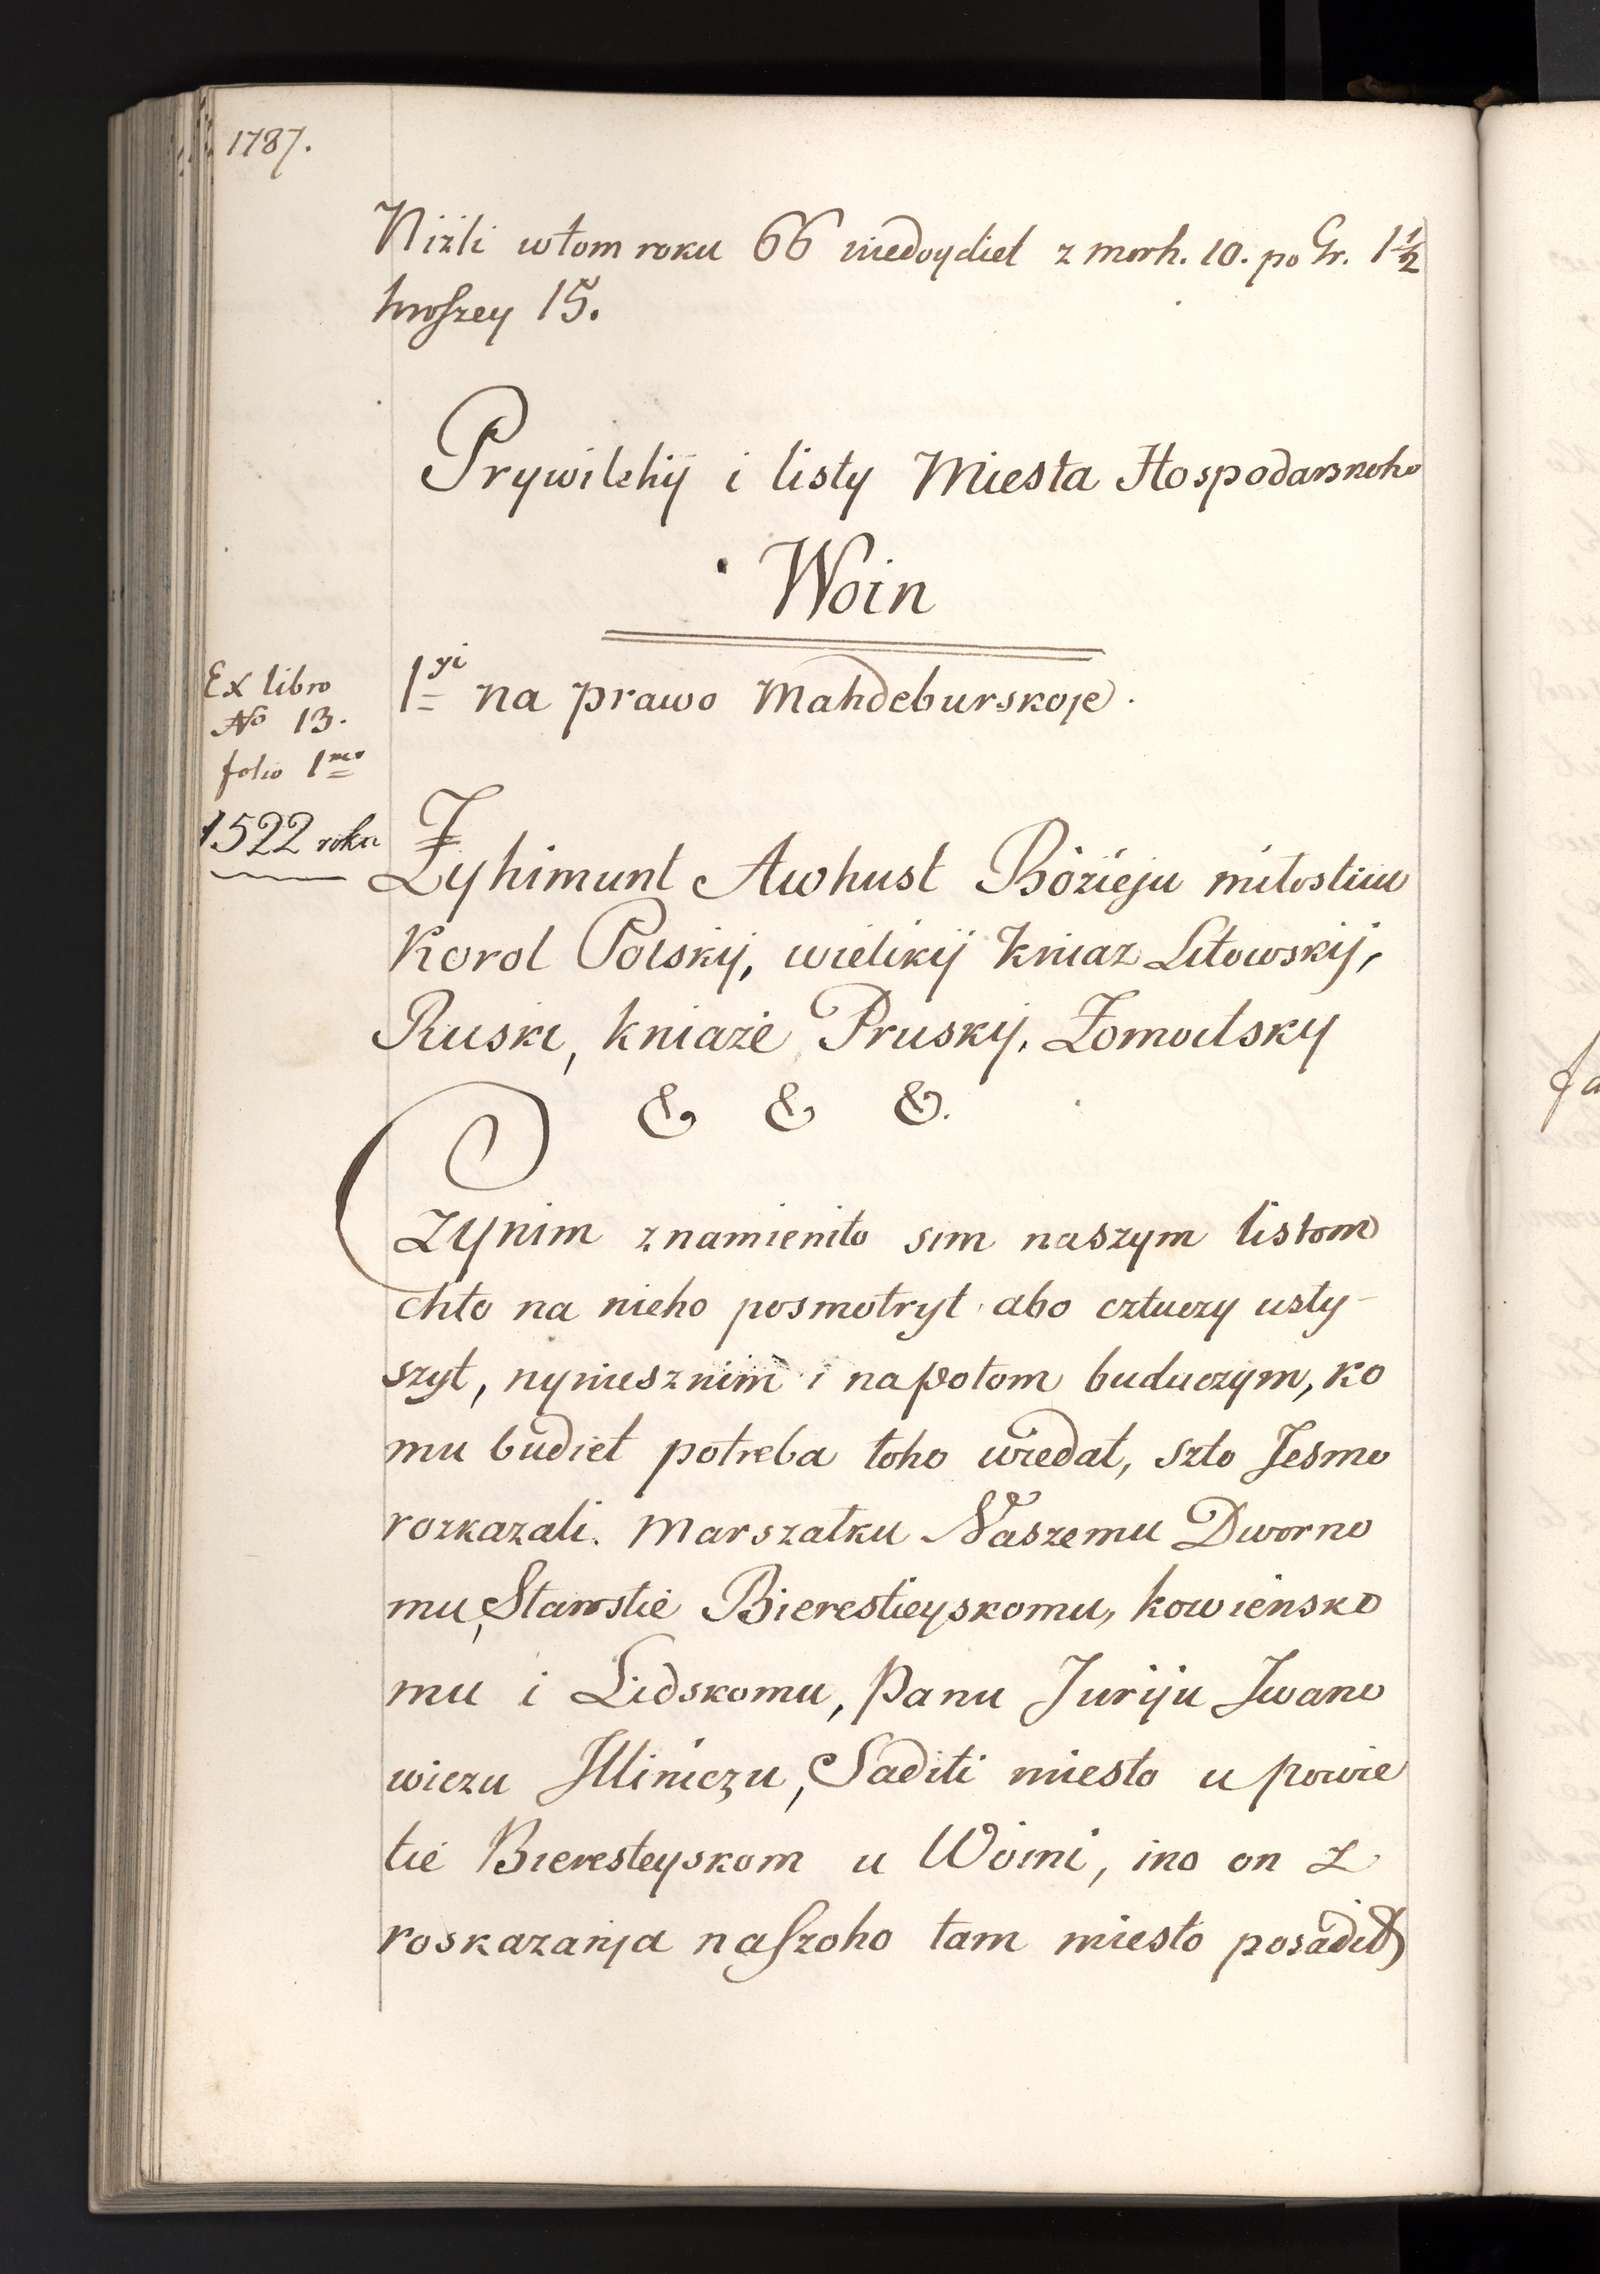 1787.
Niżli w tom roku 66 niedoydiet z morh. 10. po Gr. 1½
hroszey 15.
Prywilehij i listy Miesta Hospodarskoho
Woin
1yi na prawo Mahdeburskoje.
Ex libro
No 13.
folio 1mo
1522 roku
Zyhimunt Awhust Bożieju miłostiu
Korol Polskij, wielikij Kniaz Litowskij,
Ruski, kniaże Pruskij, Żomoitsky
& & &.
Czynim znamienito sim naszym listom
chto na nieho posmotryt abo cztuczy usły-
szyt, nynieisznim i napotom buduczym, ko
mu budiet potreba toho wiedat, szto Jesmo
rozkazali. Marszałku Naszemu Dworno
mu, Starostie Bierestieyskomu, kowiensko
mu i Lidskomu, Panu Juriju Iwano
wiczu Illiniczu, Saditi miesto u powie
tie Bieresteyskom u Woini, ino on z
roskazanja naszoho tam miesto posadił
fa